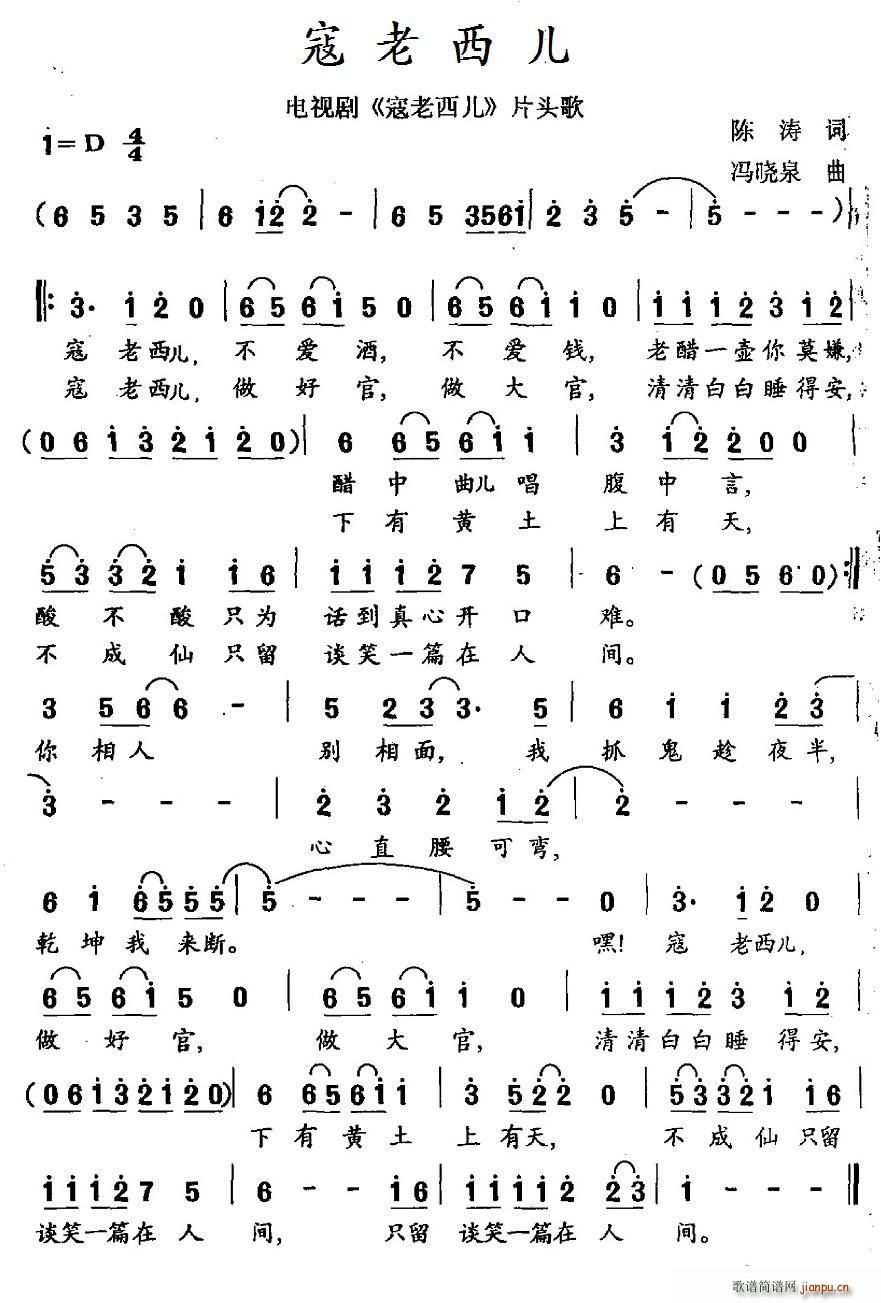 寇老西儿
电视剧《寇老西儿》片头歌
1=D 4/4
陈涛 词
冯晓泉 曲
(6 5 3 5 | 6 1̇2̇ 2̇ - | 6 5 3561̇ | 2̇ 3̇ 5̇ - | 5̇ - - - )
3̇· 1̇ 2̇ 0 | 6 5̇ 6 1̇ 5 0 | 6 5̇ 6 1̇ 1̇ 0 | 1̇ 1̇ 1̇ 2̇ 3̇ 1̇ 2̇ |
寇 老西儿, 不 爱 酒, 不 爱 钱, 老醋一壶你莫嫌,
寇 老西儿, 做 好 官, 做 大 官, 清清白白睡得安,
(0 6 1̇ 3̇ 2̇ 1̇ 2̇ 0) | 6 6 5̇ 6 1̇ 1̇ | 3̇ 1̇ 2̇ 2̇ 0 0 |
醋 中 曲儿 唱 腹 中 言,
下 有 黄 土 上 有 天,
5̇ 3̇ 3̇ 2̇ 1̇ 1̇ 6 | 1̇ 1̇ 1̇ 2̇ 7 5 | 6 - (0 5 6 0) :|
酸 不 酸 只 为 话到真心开 口 难。
不 成 仙 只 留 谈笑一篇在 人 间。
3 5 6 6 - | 5 2 3 3· 5 | 6 1̇ 1̇ 2̇ 3̇ |
你 相 人 别 相 面, 我 抓 鬼 趁 夜 半,
3̇ - - - | 2̇ 3̇ 2̇ 1̇ 2̇ | 2̇ - - - |
心 直 腰 可 弯,
6 1̇ 6 5̇ 5̇ 5̇ | 5̇ - - - | 5̇ - - 0 | 3̇· 1̇ 2̇ 0
乾 坤 我 来断。 嘿! 寇 老西儿,
6 5̇ 6 1̇ 5 0 | 6 5̇ 6 1̇ 1̇ 0 | 1̇ 1̇ 1̇ 2̇ 3̇ 1̇ 2̇ |
做 好 官, 做 大 官, 清清白白睡 得安,
(0 6 1̇ 3̇ 2̇ 1̇ 2̇ 0) | 6 6 5̇ 6 1̇ 1̇ | 3̇ 5̇ 2̇ 2̇ 0 | 5̇ 3̇ 3̇ 2̇ 1̇ 1̇ 6 |
下 有 黄 土 上 有天, 不 成 仙 只留
1̇ 1̇ 1̇ 2̇ 7 5 | 6 - - 1̇ 6 | 1̇ 1̇ 1̇ 1̇ 2̇ 2̇ 3̇ | 1̇ - - - ‖
谈笑一篇在 人 间, 只留 谈笑一篇在 人 间。
歌谱简谱网 jianpu.cn